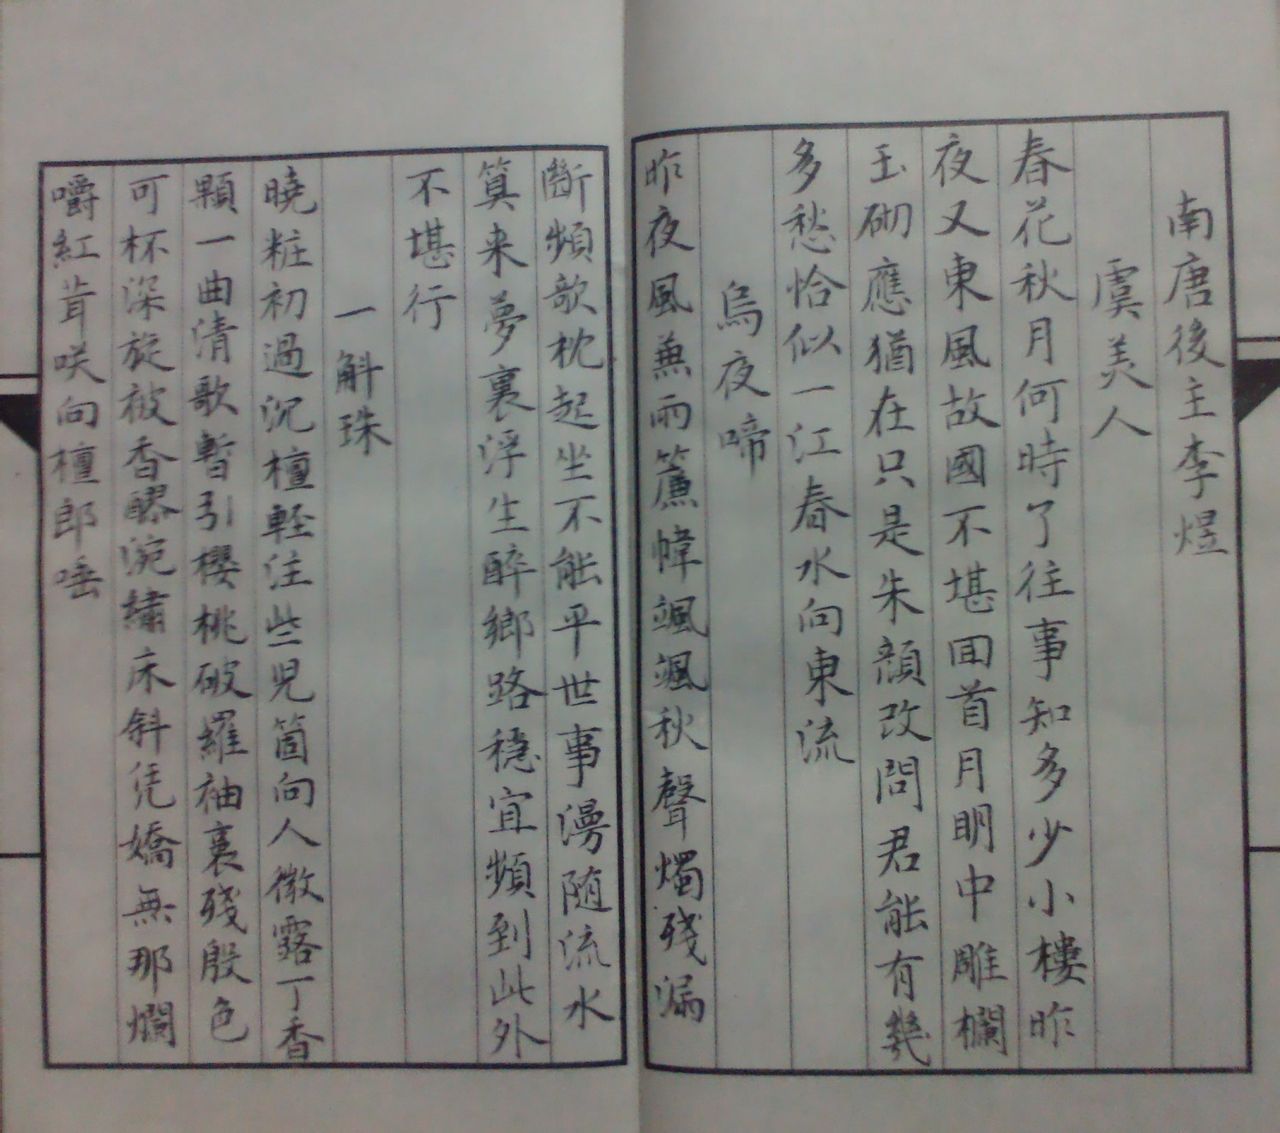 南唐後主李煜
虞美人
春花秋月何時了往事知多少小樓昨
夜又東風故國不堪回首月明中雕欄
玉砌應猶在只是朱顏改問君能有幾
多愁恰似一江春水向東流
烏夜啼
昨夜風兼雨簾幃颯颯秋聲燭殘漏
斷頻欹枕起坐不能平世事漫随流水
算来夢裏浮生醉鄉路穩宜頻到此外
不堪行
一斛珠
曉粧初過沉檀輕注些兒箇向人微露丁香
顆一曲清歌暫引櫻桃破羅袖裛殘殷色
可杯深旋被香醪涴繡床斜凭嬌無那爛
嚼紅茸咲向檀郎唾